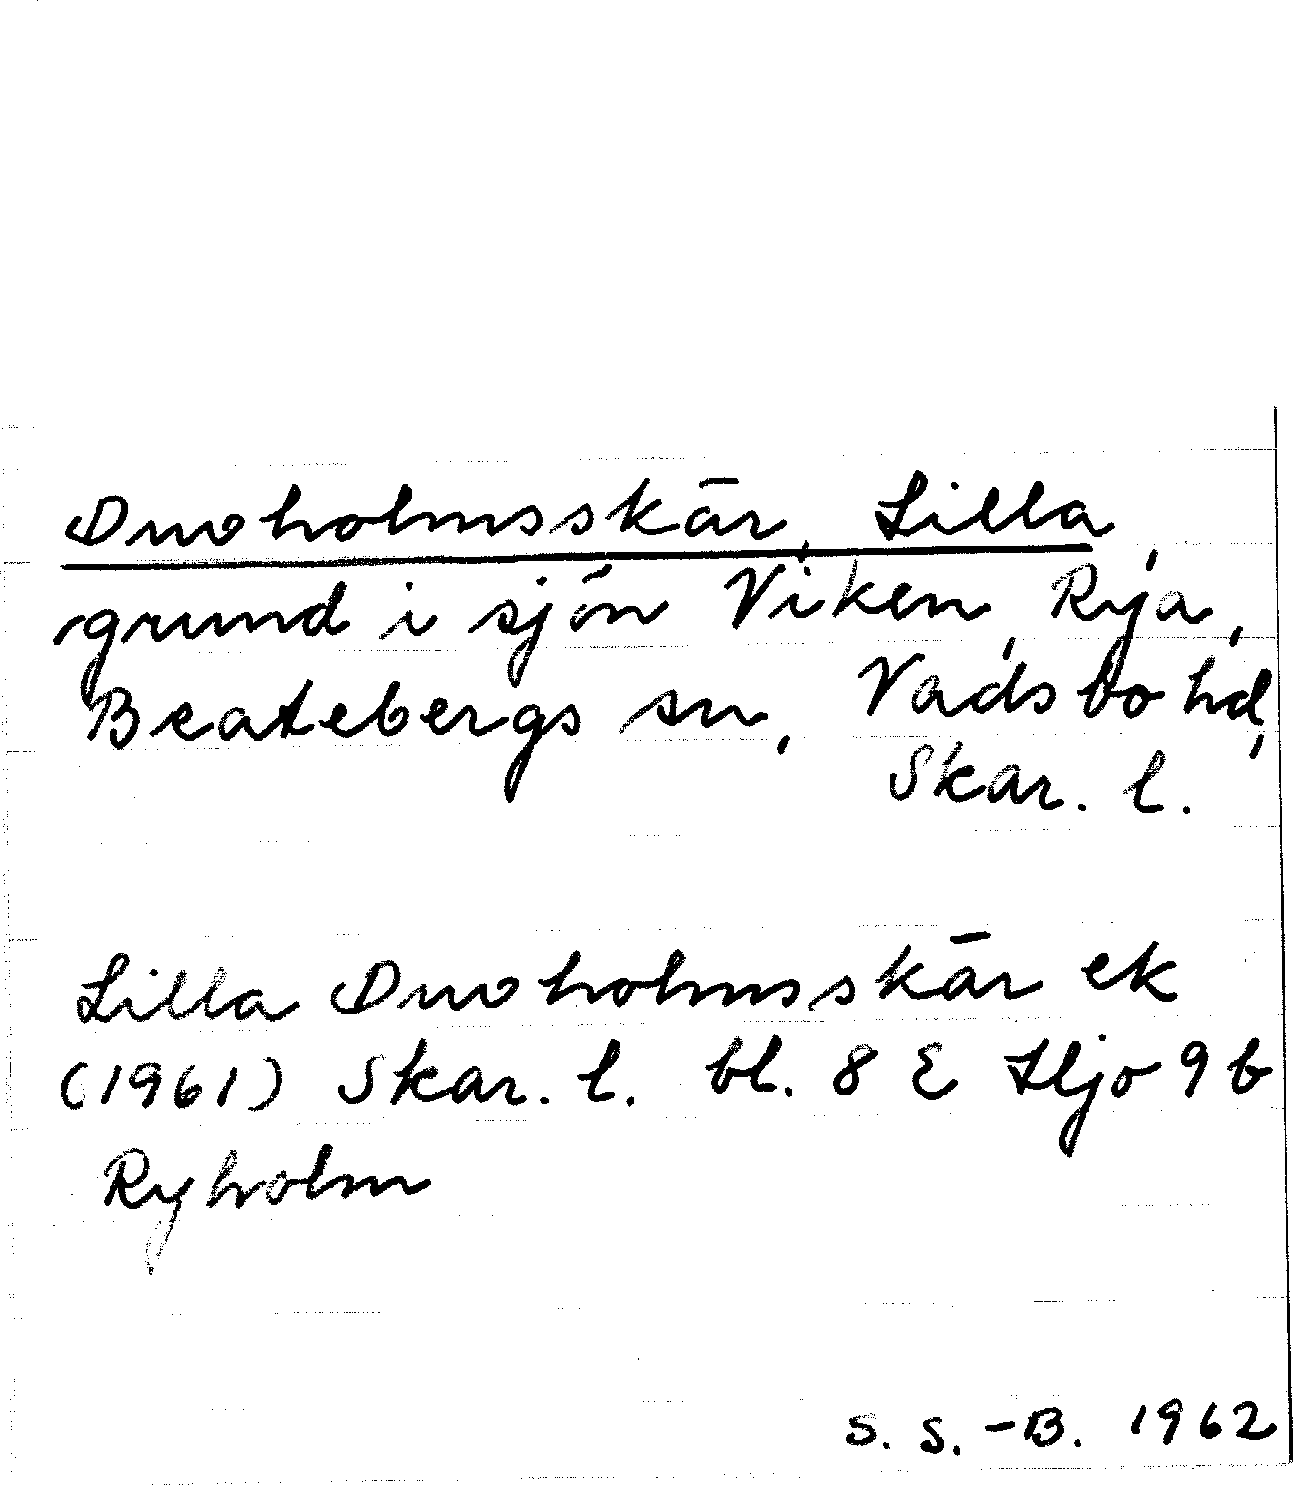 Duvholmsskär, Lilla,
grund i sjön Viken, Rya,
Beatebergs sn, Vadsbo hd,
Skar. l.
Lilla Duvholmsskär ek
(1961) Skar. l. bl. 8 E Hjo 9 b
Ryholm
S. S.-B. 1962